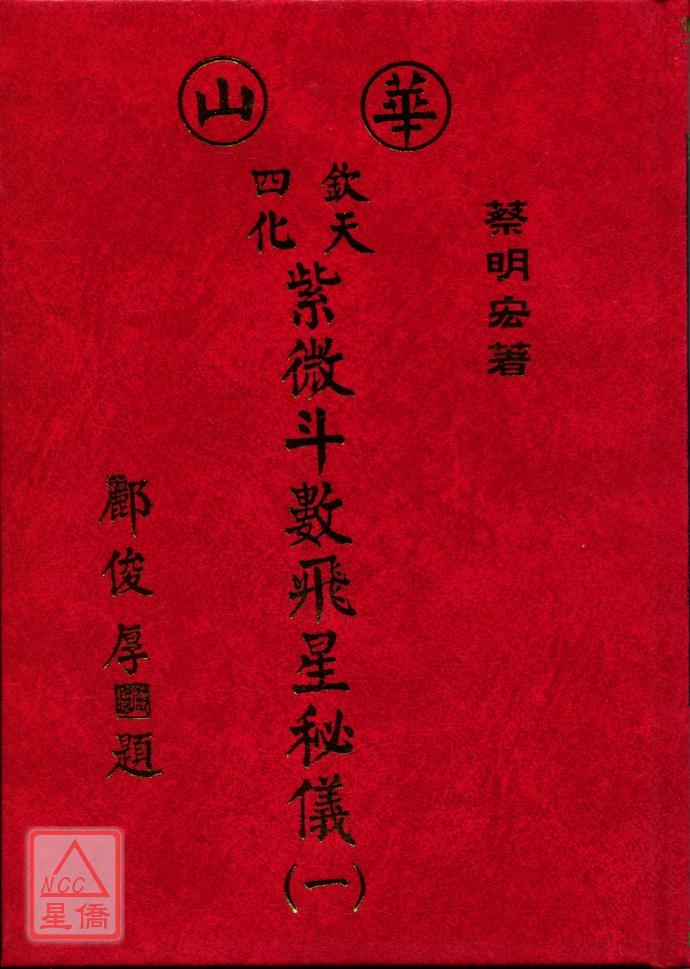 華山
蔡明宏著
欽天
四化
紫微斗數飛星秘儀(一)
酈俊厚題
NCC
星僑